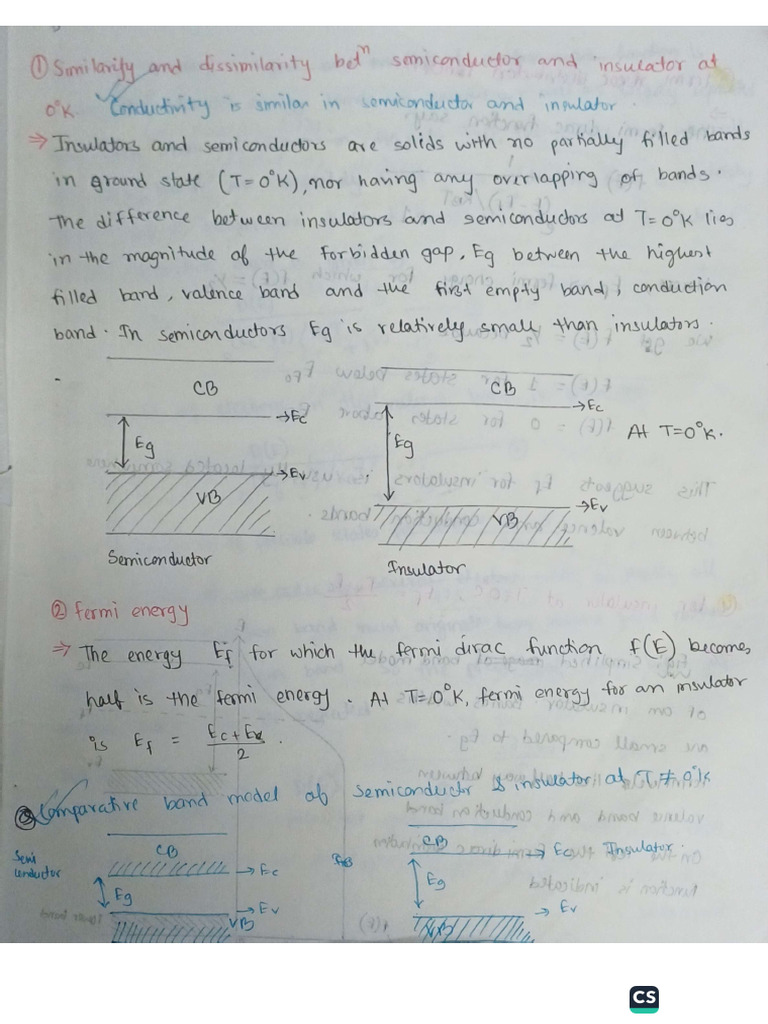 ① Similarity and dissimilarity betn semiconductor and insulator at
0°K. Conductivity is similar in semiconductor and insulator.
⇒ Insulators and semiconductors are solids with no partially filled bands
in ground state (T=0°K), nor having any overlapping of bands.
The difference between insulators and semiconductors at T=0°K lies
in the magnitude of the forbidden gap, Eg between the highest
filled band, valence band and the first empty band, conduction
band. In semiconductors Eg is relatively small than insulators.
CB CB
→Ec →Ec
Eg Eg At T=0°K.
→Ev →Ev
VB VB
Semiconductor Insulator
② fermi energy
⇒ The energy Ef for which the fermi dirac function f(E) becomes
half is the fermi energy. At T=0°K, fermi energy for an insulator
is Ef = Ec+Ev / 2 .
Comparative band model of semiconductor & insulator at T ≠ 0°K
Semi conductor CB → Ec CB → Ec Insulator.
Eg Eg
→ Ev → Ev
VB VB
CS